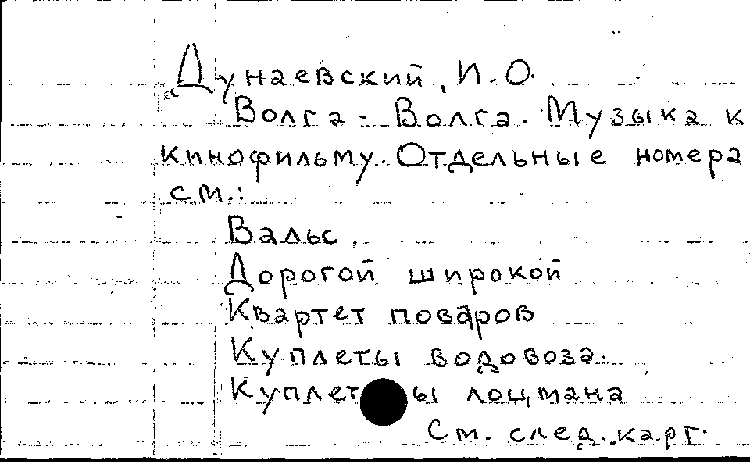 Дунаевский, И.О.
Волга-Волга. Музыка к
кинофильму. Отдельные номера
см.:
Вальс.
Дорогой широкой
Квартет поваров
Куплеты водовоза.
Куплеты лоцмана
См. след. карт.